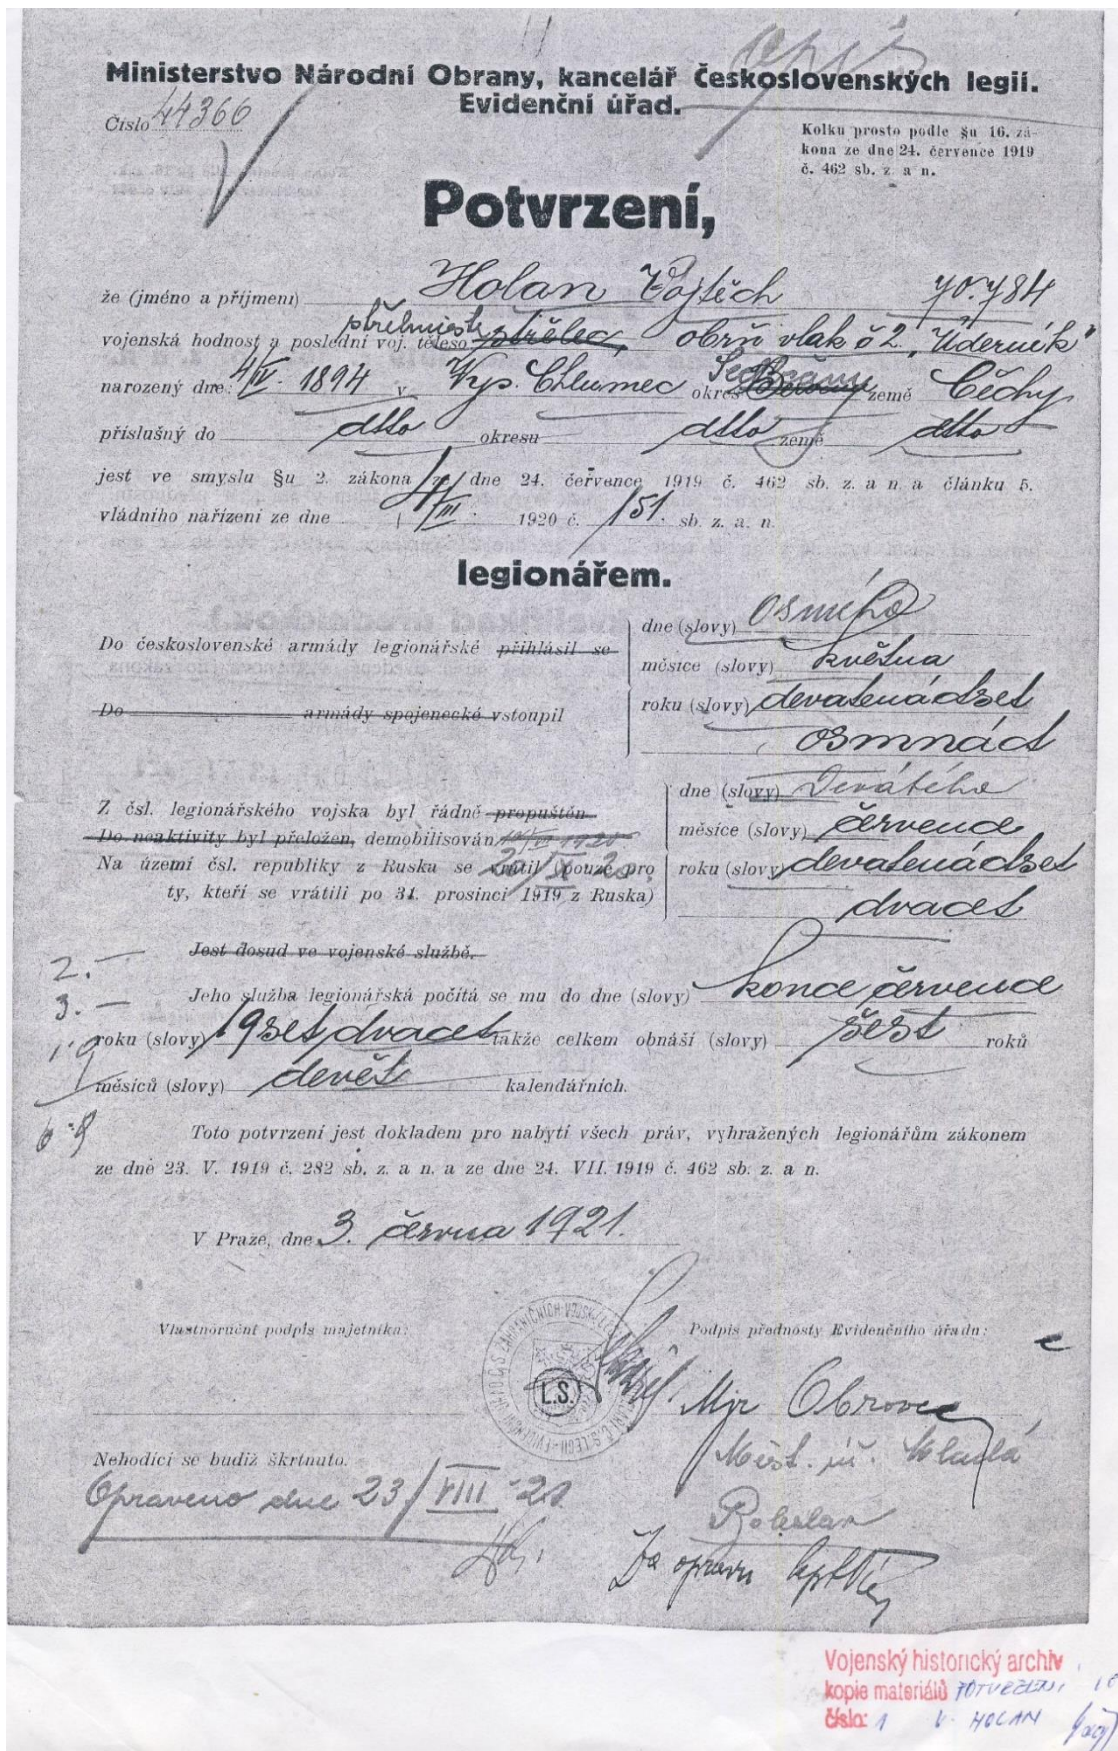 Opis
Ministerstvo Národní Obrany, kancelář Československých legií.
Evidenční úřad.
Číslo 44366
Kolku prosto podle §u 16. zá-
kona ze dne 24. července 1919
č. 462 sb. z. a n.
Potvrzení,
že (jméno a příjmení) Holan Vojtěch 70.784
střelmistr
vojenská hodnost a poslední voj. těleso střelec, obrň vlak č 2. „Úderník"
narozený dne: 4/IV. 1894 v Vys. Chlumec okres Sedlčany země Čechy
příslušný do dtto okresu dtto země dtto
jest ve smyslu §u 2. zákona ze dne 24. července 1919 č. 462 sb. z. a n. a článku 5.
vládního nařízení ze dne 4/III. 1920 č. 151. sb. z. a n.
legionářem.
Do československé armády legionářské přihlásil se
Do armády spojenecké vstoupil
dne (slovy) osmého
měsíce (slovy) května
roku (slovy) devatenáctset
osmnáct
Z čsl. legionářského vojska byl řádně propuštěn
Do neaktivity byl přeložen, demobilisován
Na území čsl. republiky z Ruska se vrátil (pouze pro
ty, kteří se vrátili po 31. prosinci 1919 z Ruska)
dne (slovy) Devátého
měsíce (slovy) července
roku (slovy) devatenáctset
dvacet
Jest dosud ve vojenské službě.
2.—
3.—
Jeho služba legionářská počítá se mu do dne (slovy) konce července
roku (slovy) 19set dvacet takže celkem obnáší (slovy) šest roků
měsíců (slovy) devět kalendářních.
6·9
Toto potvrzení jest dokladem pro nabytí všech práv, vyhražených legionářům zákonem
ze dne 23. V. 1919 č. 282 sb. z. a n. a ze dne 24. VII. 1919 č. 462 sb. z. a n.
V Praze, dne 3. června 1921.
Vlastnoruční podpis majetníka:
Podpis přednosty Evidenčního úřadu:
L.S.
Mjr Obrovec
Nehodící se budiž škrtnuto.
Mladá
Opraveno dne 23/VIII 21.
Boleslav
Za opravu
Vojenský historický archiv
kopie materiálů POTVRZENÍ
číslo: 1 V. HOLAN